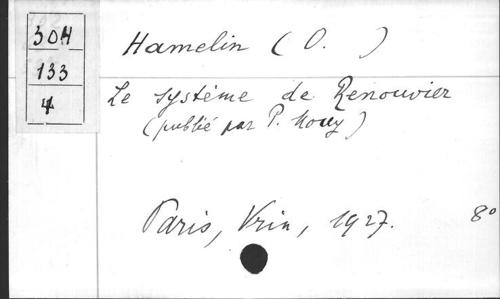 304
133
4
Hamelin ( O. )
Le système de Renouvier
(publié par P. Mouy)
Paris, Vrin, 1927. 8°